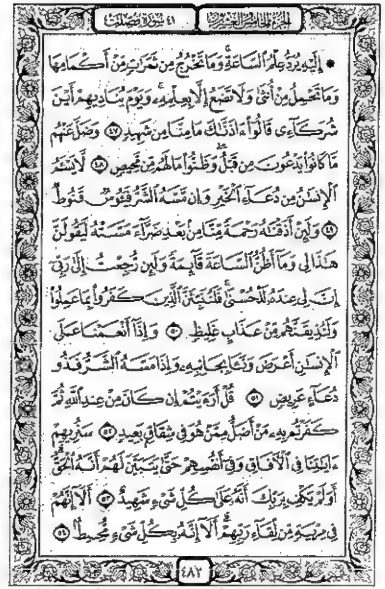 الجزء الخامس والعشرون
٤١ سورة فصلت
إِلَيْهِ يُرَدُّ عِلْمُ السَّاعَةِ وَمَا تَخْرُجُ مِن ثَمَرَٰتٍ مِّنْ أَكْمَامِهَا
وَمَا تَحْمِلُ مِنْ أُنثَىٰ وَلَا تَضَعُ إِلَّا بِعِلْمِهِ وَيَوْمَ يُنَادِيهِمْ أَيْنَ
شُرَكَآءِى قَالُوٓا۟ ءَاذَنَّـٰكَ مَا مِنَّا مِن شَهِيدٍ ٤٧ وَضَلَّ عَنْهُم
مَّا كَانُوا۟ يَدْعُونَ مِن قَبْلُ وَظَنُّوا۟ مَا لَهُم مِّن مَّحِيصٍ ٤٨ لَّا يَسْـَٔمُ
الْإِنسَـٰنُ مِن دُعَآءِ الْخَيْرِ وَإِن مَّسَّهُ الشَّرُّ فَيَـُٔوسٌ قَنُوطٌ
٤٩ وَلَئِنْ أَذَقْنَـٰهُ رَحْمَةً مِّنَّا مِن بَعْدِ ضَرَّآءَ مَسَّتْهُ لَيَقُولَنَّ
هَـٰذَا لِى وَمَآ أَظُنُّ السَّاعَةَ قَآئِمَةً وَلَئِن رُّجِعْتُ إِلَىٰ رَبِّىٓ
إِنَّ لِى عِندَهُ لَلْحُسْنَىٰ فَلَنُنَبِّئَنَّ الَّذِينَ كَفَرُوا۟ بِمَا عَمِلُوا۟
وَلَنُذِيقَنَّهُم مِّنْ عَذَابٍ غَلِيظٍ ٥٠ وَإِذَآ أَنْعَمْنَا عَلَى
الْإِنسَـٰنِ أَعْرَضَ وَنَـَٔا بِجَانِبِهِ وَإِذَا مَسَّهُ الشَّرُّ فَذُو
دُعَآءٍ عَرِيضٍ ٥١ قُلْ أَرَءَيْتُمْ إِن كَانَ مِنْ عِندِ اللَّهِ ثُمَّ
كَفَرْتُم بِهِ مَنْ أَضَلُّ مِمَّنْ هُوَ فِى شِقَاقٍ بَعِيدٍ ٥٢ سَنُرِيهِمْ
ءَايَـٰتِنَا فِى الْـَٔافَاقِ وَفِىٓ أَنفُسِهِمْ حَتَّىٰ يَتَبَيَّنَ لَهُمْ أَنَّهُ الْحَقُّ
أَوَلَمْ يَكْفِ بِرَبِّكَ أَنَّهُ عَلَىٰ كُلِّ شَىْءٍ شَهِيدٌ ٥٣ أَلَآ إِنَّهُمْ
فِى مِرْيَةٍ مِّن لِّقَآءِ رَبِّهِمْ أَلَآ إِنَّهُ بِكُلِّ شَىْءٍ مُّحِيطٌ ٥٤
٤٨٢